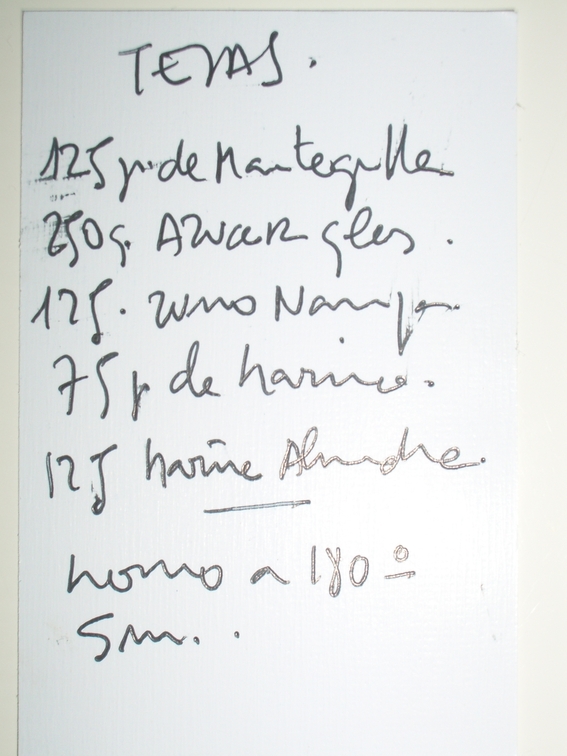 TEJAS.
125 gr. de Mantequilla
250 g. AZUCAR glas.
125. zumo Naranja.
75 gr de harina.
125 harina Almendra.
horno a 180º
5 m.